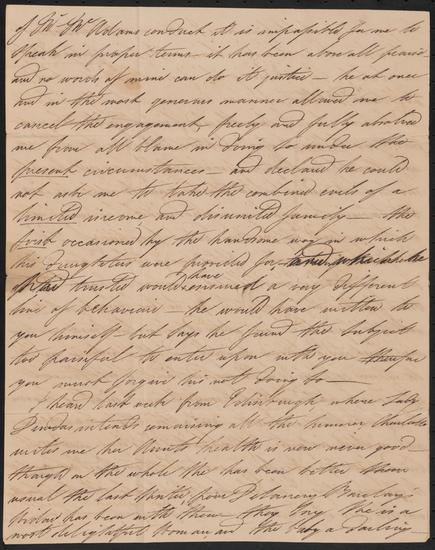 of Mr. Adams conduct it is impossible for me to
speak in proper terms it has been above all praise
and no words of mine can do it justice – he at once
and in the most generous manner allowed me to
cancel the engagement, freely and fully absolved
me from all blame in doing so under the
present circumstances – and declared he could
not ask me to take the combined evils of a
limited income and disunited family – the
first occasioned by the handsome way in which
his daughters were provided for, and which he
had trusted would have ensured a very different
line of behaviour – he would have written to
you himself – but says he found the subject
too painful to enter upon with you therefore
you must forgive his not doing so –
I heard last week from Edinburgh where Lady
Dundas intends remaining all the summer Charlotte
writes me her Aunts health is now very good –
though on the whole she has been better than
usual the last Winter poor Delancey Barclays
Widow has been with them they say she is a
most delightful Woman and the baby a darling –